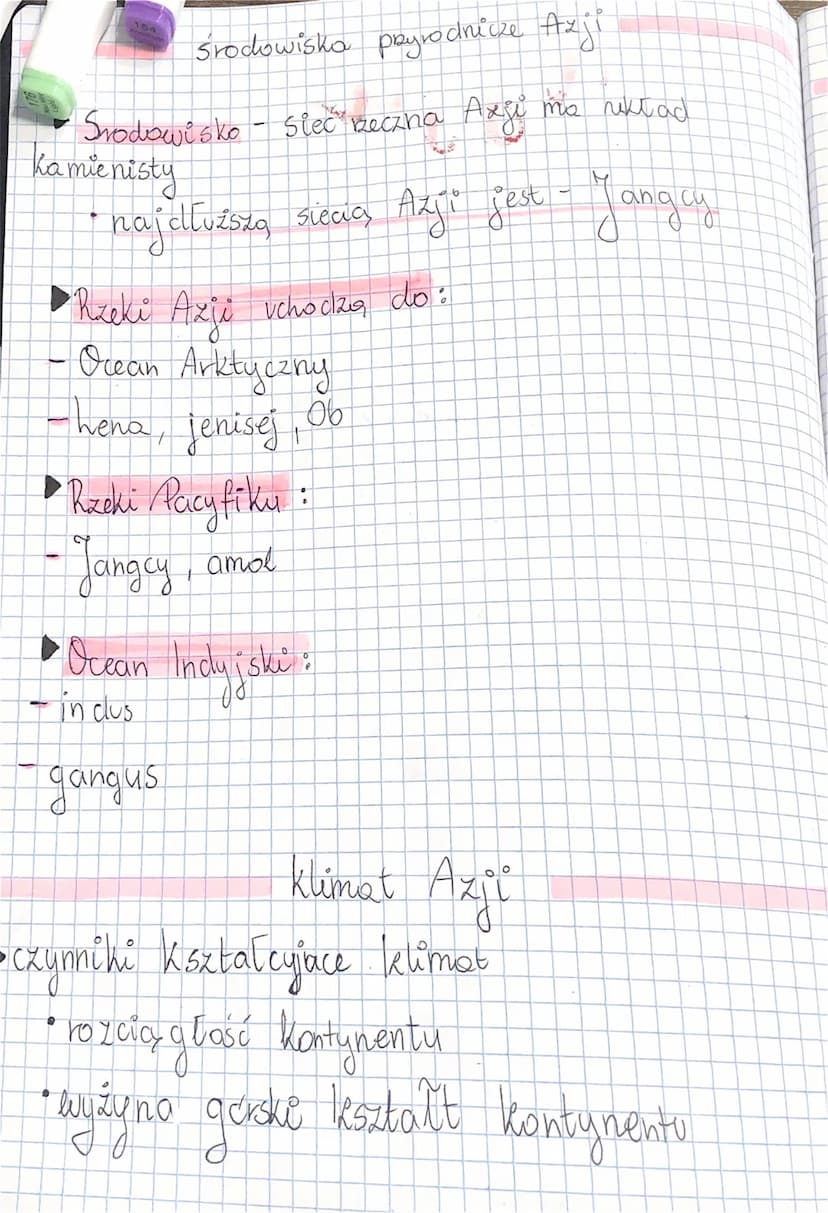 środowiska przyrodnicze Azji
Środowisko - sieć rzeczna Azji ma układ
kamienisty
• najdłuższą siecią Azji jest - Jangcy
Rzeki Azji uchodzą do:
- Ocean Arktyczny
- Lena, jenisej, Ob
Rzeki Pacyfiku:
- Jangcy, amol
Ocean Indyjski:
- indus
- gangus
klimat Azji
• czynniki kształcyjace klimat
• rozciągłość kontynentu
• wyżyna górski kształt kontynentu